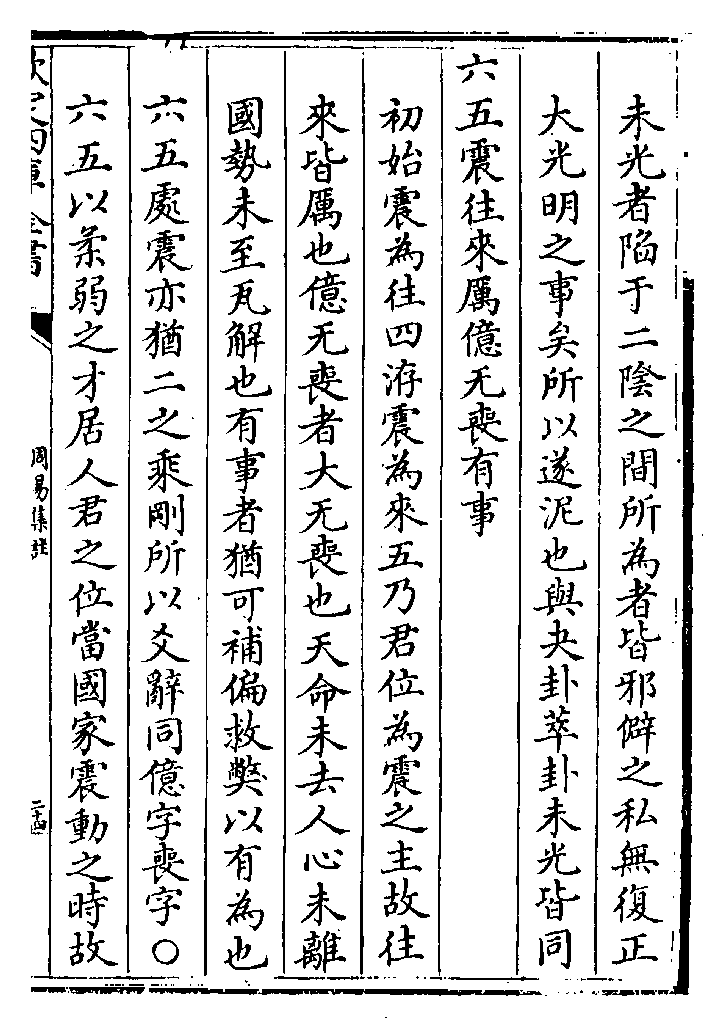 未光者陷于二陰之間所為者皆邪僻之私無復正
大光明之事矣所以遂泥也與夬卦萃卦未光皆同
六五震往來厲億无喪有事
初始震為往四洊震為來五乃君位為震之主故往
來皆厲也億无喪者大无喪也天命未去人心未離
國勢未至瓦解也有事者猶可補偏救弊以有為也
六五處震亦猶二之乘剛所以爻辭同億字喪字○
六五以柔弱之才居人君之位當國家震動之時故
欽定四庫全書
周易集註
二十四